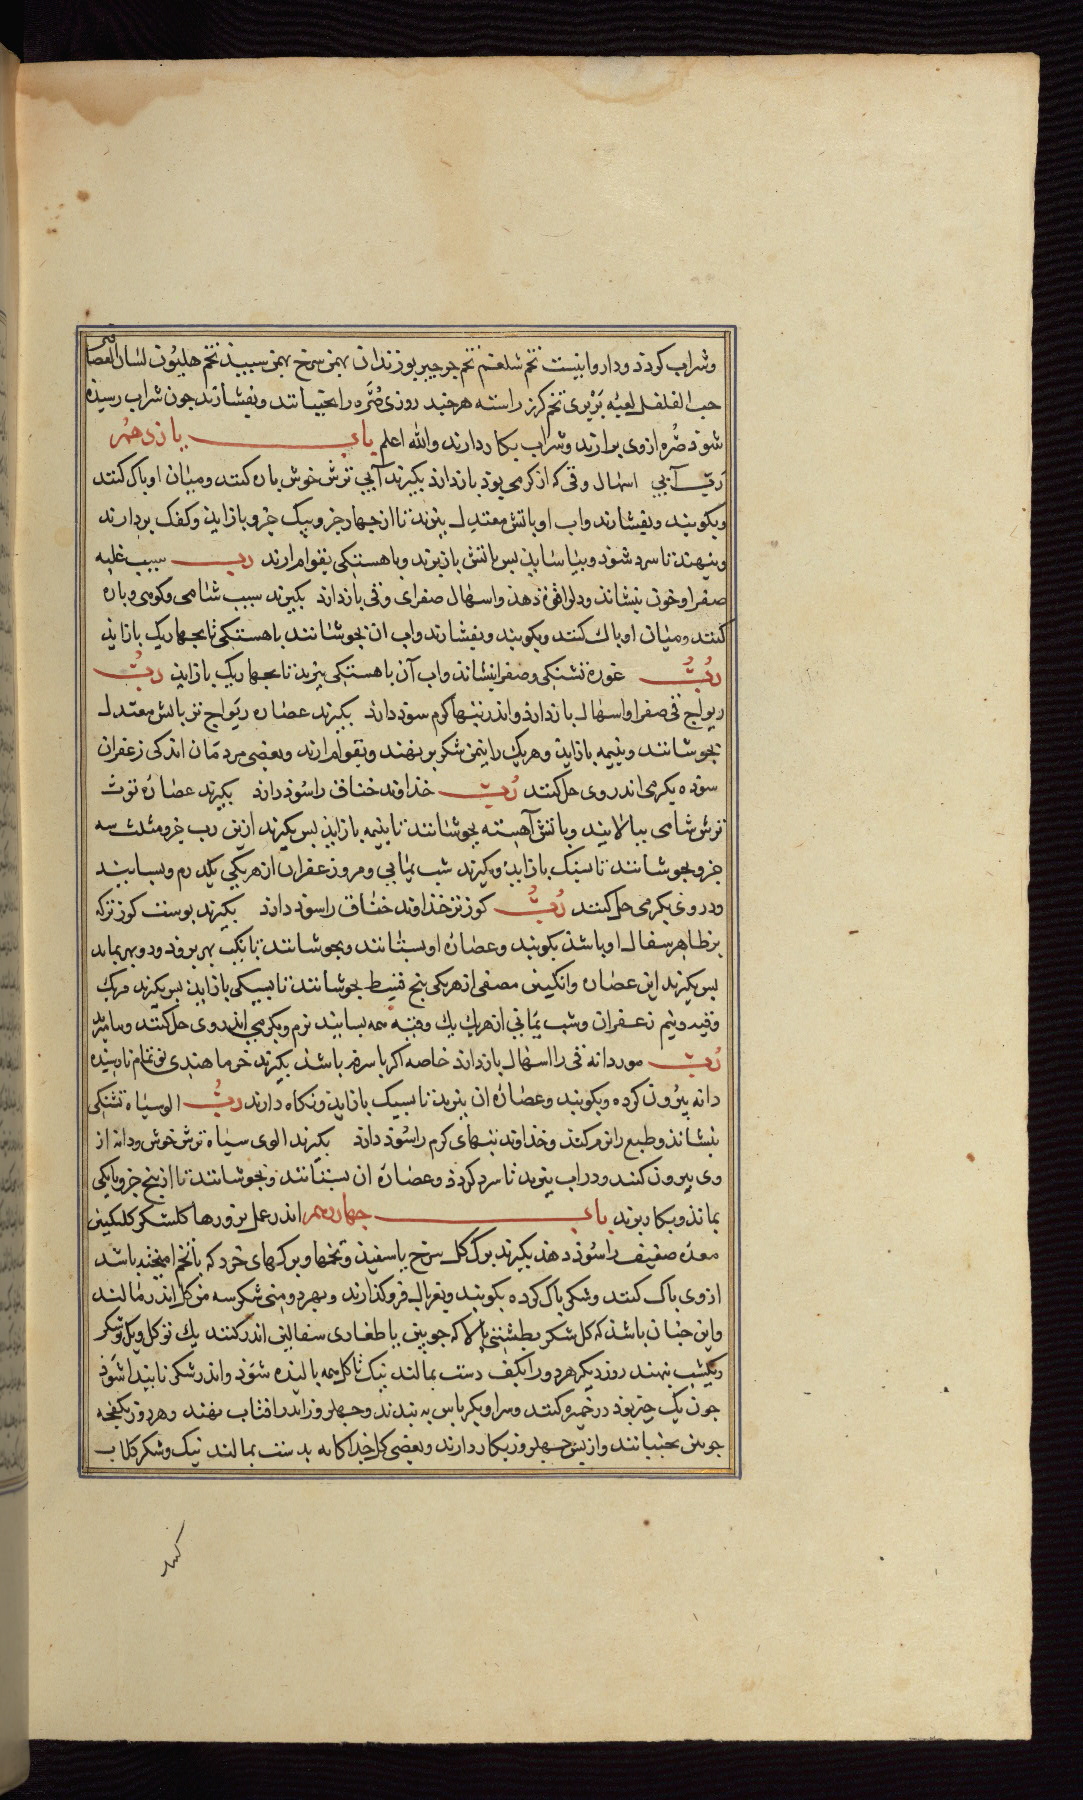 شراب کردد و داروا اینست تخم شلغم تخم جرجیر بوزندان بهمن سرخ بهمن سبید تخم هلیون لسان العصافیر
حب الفلفل لعبه بربری تخم کرز راسته هر چند روزی صره را بجنبانند و بفشارند جون شراب رسیده
شود صره ازوی برارند و شراب بکار دارند والله اعلم باب یازدهم
رب آبی اسهال وقی که از کرمی بود بازدارد بکیرند آبی ترش خوش باره کنند و میان او باک کنند
و بکوبند و بفشارند و اب او باتش معتدل ببزند تا از جهار جزو بیک جزو بازاید و کفک بردارند
و بنهند تا سرد شود و بیاساید بس باتش بازبرند و باهستکی بقوام ارند رب سبب غلبه
صفرا و خون بنشاند و دل را قوة دهد و اسهال صفرای وقی بازدارد بکیرند سبب شامی و کوهی و باره
کنند و میان او باک کنند و بکوبند و بفشارند و اب ان بجوشانند باهستکی تا بجهاریک بازاید
رب غوره تشنکی و صفرا بنشاند و اب آن باهستکی ببزند تا بجهاریک بازاید رب
ریواج قی صفرا و اسهال بازدارد و اندر تبها کرم سود دارد بکیرند عصاره ریواج تر باتش معتدل
بجوشانند و بنیمه بازاید و هر یک را نیمن شکر بر نهند و بقوام ارند و بعضی مردمان اندکی زعفران
سوده بکرمی اندر وی حل کنند رب خداوند خناق را سود دارد بکیرند عصاره توث
ترش شامی ببالایند و باتش آهسته بجوشانند تا بنیمه بازاید بس بکیرند ازین رب جزو مثلث سه
جزو بجوشانند تا سیک بازاید و بکیرند شب یمانی و مر و زعفران از هر یکی یکدرم و بسایند
و در وی بکرمی حل کنند رب کوز تر خداوند خناق را سود دارد بکیرند بوست کوز تر که
بر ظاهر سفال او باشد بکوبند و عصاره او بستانند و بجوشانند تا یک بهر برود و دو بهر بماند
بس بکیرند این عصاره و انکبین مصفی از هر یکی بنج قسط بجوشانند تا بسیکی بازاید بس بکیرند مر یک
وقیه و نیم زعفران و شب یمانی از هر یک یک وقیه همه بسایند نرم و بکرمی اندر وی حل کنند
رب مورد دانه قی را اسهال بازدارد خاصه اکر با سرفه باشد بکیرند خرما هندی نو تمام نارسیده
دانه بیرون کرده و بکوبند و عصاره ان ببزند تا بسیک بازاید و نکاه دارند رب الو سیاه تشنکی
بنشاند و طبع را نرم کند و خداوند تبهای کرم را سود دارد بکیرند الوی سیاه ترش خوش و دانه از
وی بیرون کنند و در اب ببزند تا سرد کردد و عصاره ان بستانند و بجوشانند تا از بنج جزو با یکی
بماند و بکار برند باب جهاردهم اندر عمل بزورها کلشکر کلنکبین
معده ضعیف را سود دهد بکیرند برک کل سرخ یا سفید و تخمها و برکهای خرد که با تخم امیخته باشد
ازوی باک کنند و شکر باک کرده بکوبند و بغربال فرو کذارند و بهر دو منی شکر سه من کل اندر مالند
و این جنان باشد که کل شکر بطشتی یا لاکه جوبین یا طغاری سفالین اندر کنند یک تو کل و یک تو شکر
و یکشب بنهند روز دیکر هر دو را بکف دست بمالند نیک تا کل همه بالیده شود و اندر شکر نابیدا شود
جون یک جیز بود در خمره کنند و سر او بکرباس به بندند و جهل روز اندر افتاب نهند و هر روز بکفجه
جوبین بجنبانند و از بس جهل روز بکار دارند و بعضی کل جداکانه بدست بمالند نیک و شکر کلاب
کنند